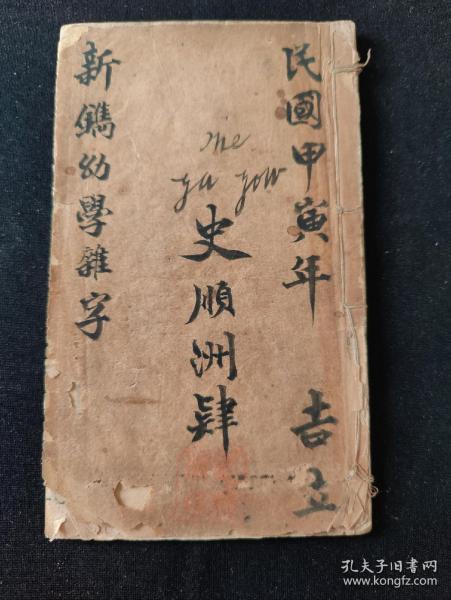 民國甲寅年 吉立
The
ya you
史順洲肄
新鐫幼學雜字
孔夫子旧书网
www.kongfz.com